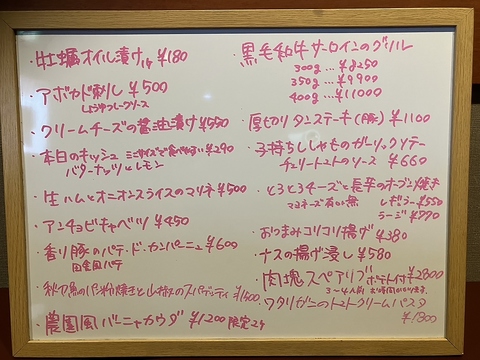 ・牡蠣オイル漬け 1ヶ ¥180
・アボカド刺し ¥500
しょうゆ
・クリームチーズの醤油漬け ¥550
・本日のキッシュ ミニサイズで食べやすい ¥290
バターナッツとレモン
・生ハムとオニオンスライスのマリネ ¥500
・アンチョビキャベツ ¥450
・香り豚のパテ・ド・カンパーニュ ¥600
田舎風パテ
・秋刀魚の と山椒のスパゲッティ ¥1500
・農園風バーニャカウダ ¥1200 限定2ケ
・黒毛和牛サーロインのグリル
300g … ¥8250
350g … ¥9900
400g … ¥11000
・厚切りタンステーキ(豚) ¥1100
・子持ちししゃものガーリックソテー
チェリートマトのソース ¥660
・とろとろチーズと長芋のオーブン焼き
マヨネーズ 有or無 レギュラー ¥550
ラージ ¥770
・おつまみコリコリ揚げ ¥380
・ナスの揚げ浸し ¥580
・肉塊スペアリブ ポテト付 ¥2800
3〜4人前 お時間かかります
・ワタリガニのトマトクリームパスタ
¥1800